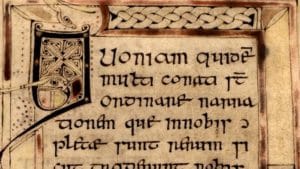 Quoniam quidē
multi conati st̄
ordinare narra
tionem que innobis ɔ
pletæ sunt rerum si